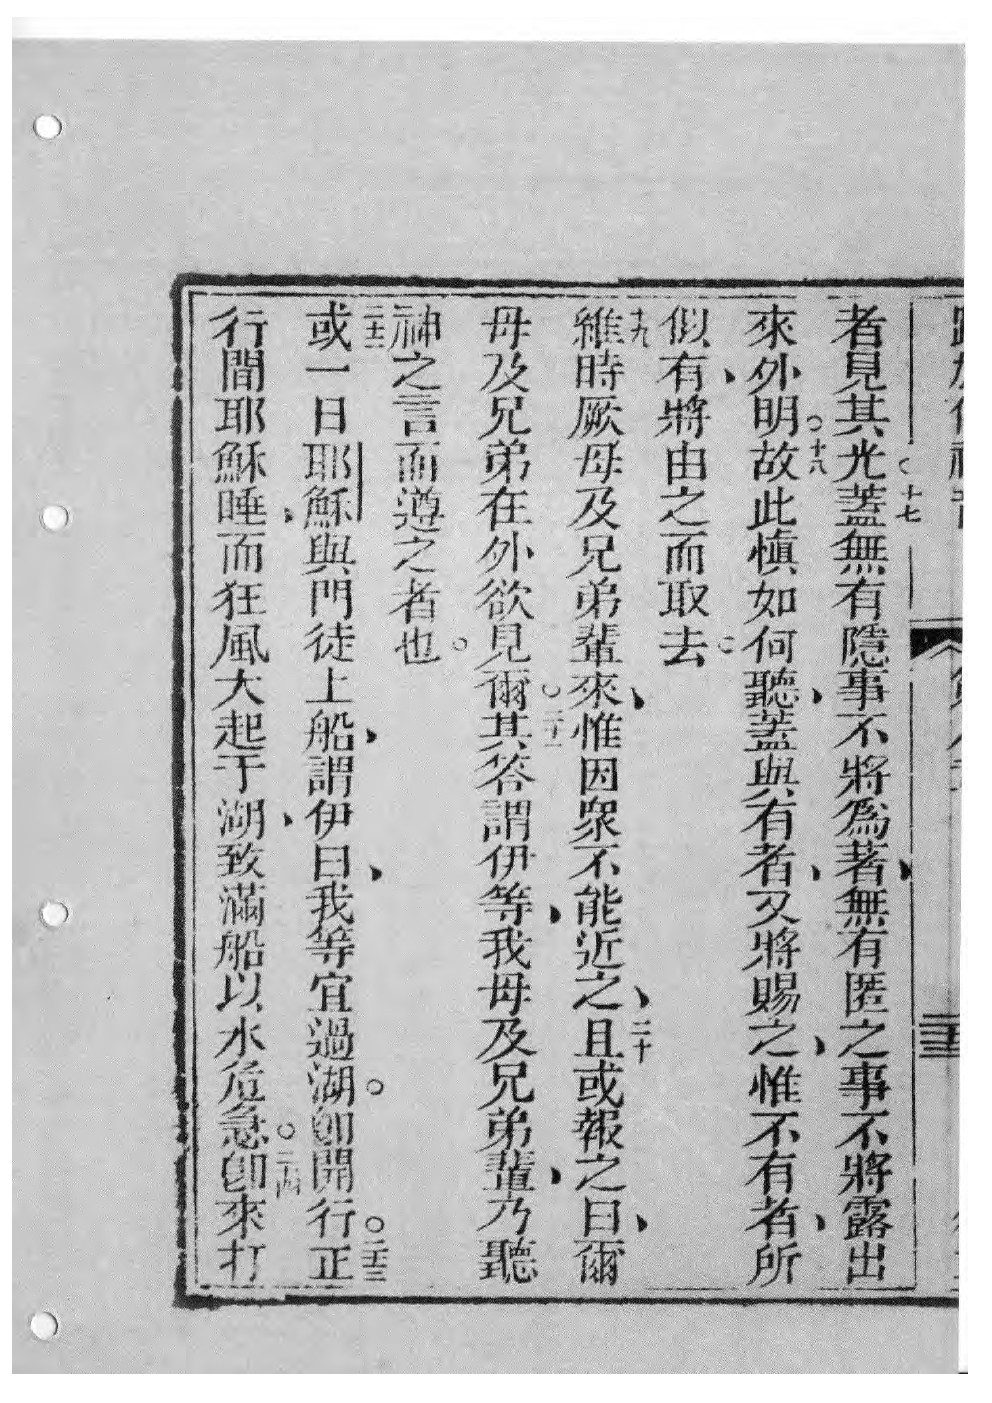 者見其光蓋無有隱事不將爲著無有匿之事不將露出
十七
來外明故此愼如何聽蓋與有者又將賜之惟不有者所
十八
似有將由之而取去
維時厥母及兄弟輩來惟因衆不能近之且或報之曰爾
十九
二十
母及兄弟在外欲見爾其答謂伊等我母及兄弟輩乃聽
二十一
神之言而遵之者也
或一日耶穌與門徒上船謂伊曰我等宜過湖卽開行正
二十二
二十三
行間耶穌睡而狂風大起于湖致滿船以水危急卽來打
二十四